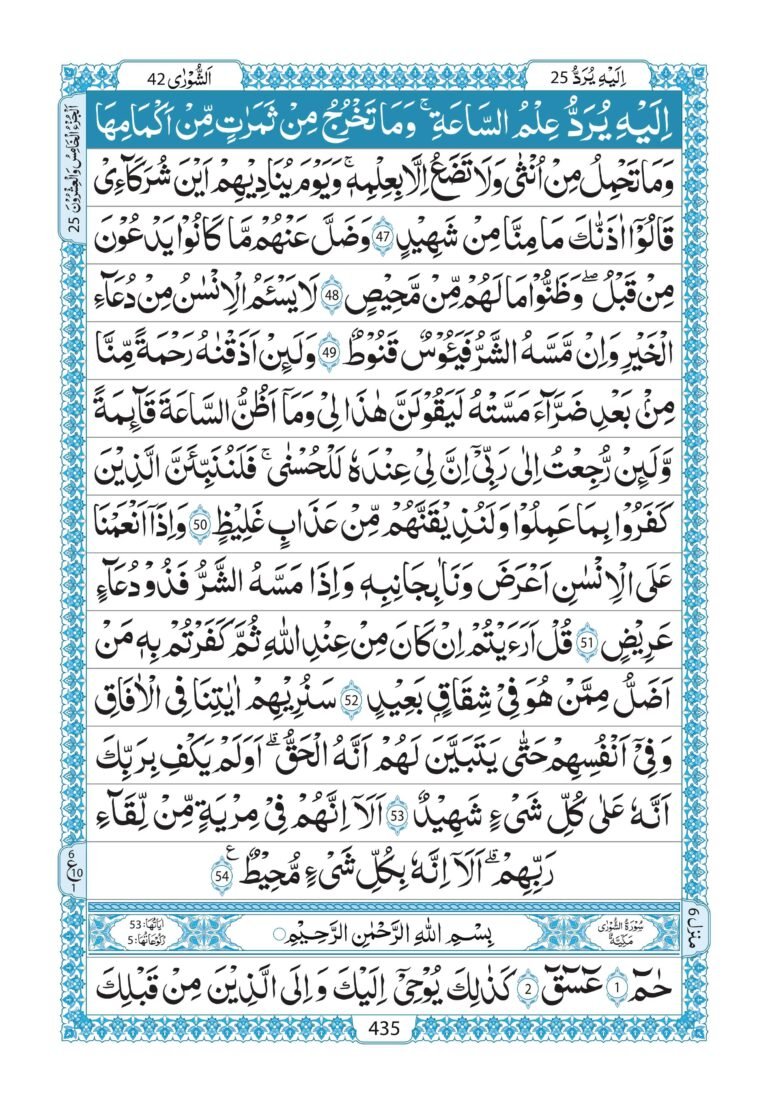 اِلَيْهِ يُرَدُّ 25
اَلشُّوْرٰى 42
اَلْجُزْءُ الْخَامِسُ وَالْعِشْرُوْنَ 25
اِلَيْهِ يُرَدُّ عِلْمُ السَّاعَةِ ؕ وَمَا تَخْرُجُ مِنْ ثَمَرٰتٍ مِّنْ اَكْمَامِهَا
وَمَا تَحْمِلُ مِنْ اُنْثٰى وَلَا تَضَعُ اِلَّا بِعِلْمِهٖ ؕ وَيَوْمَ يُنَادِيْهِمْ اَيْنَ شُرَكَآءِىْ
قَالُوْۤا اٰذَنّٰكَ مَا مِنَّا مِنْ شَهِيْدٍ 47 وَضَلَّ عَنْهُمْ مَّا كَانُوْا يَدْعُوْنَ
مِنْ قَبْلُ ۖ وَظَنُّوْا مَا لَهُمْ مِّنْ مَّحِيْصٍ 48 لَا يَسْـَٔمُ الْاِنْسٰنُ مِنْ دُعَآءِ
الْخَيْرِ وَاِنْ مَّسَّهُ الشَّرُّ فَيَـُٔوْسٌ قَنُوْطٌ 49 وَلَئِنْ اَذَقْنٰهُ رَحْمَةً مِّنَّا
مِنْۢ بَعْدِ ضَرَّآءَ مَسَّتْهُ لَيَقُوْلَنَّ هٰذَا لِىْ وَمَاۤ اَظُنُّ السَّاعَةَ قَآئِمَةً
وَّلَئِنْ رُّجِعْتُ اِلٰى رَبِّىْۤ اِنَّ لِىْ عِنْدَهٗ لَلْحُسْنٰى ۚ فَلَنُنَبِّئَنَّ الَّذِيْنَ
كَفَرُوْا بِمَا عَمِلُوْا وَلَنُذِيْقَنَّهُمْ مِّنْ عَذَابٍ غَلِيْظٍ 50 وَاِذَاۤ اَنْعَمْنَا
عَلَى الْاِنْسٰنِ اَعْرَضَ وَنَاٰ بِجَانِبِهٖ وَاِذَا مَسَّهُ الشَّرُّ فَذُوْ دُعَآءٍ
عَرِيْضٍ 51 قُلْ اَرَءَيْتُمْ اِنْ كَانَ مِنْ عِنْدِ اللّٰهِ ثُمَّ كَفَرْتُمْ بِهٖ مَنْ
اَضَلُّ مِمَّنْ هُوَ فِىْ شِقَاقٍۭ بَعِيْدٍ 52 سَنُرِيْهِمْ اٰيٰتِنَا فِى الْاٰفَاقِ
وَفِىْۤ اَنْفُسِهِمْ حَتّٰى يَتَبَيَّنَ لَهُمْ اَنَّهُ الْحَقُّ ؕ اَوَلَمْ يَكْفِ بِرَبِّكَ
اَنَّهٗ عَلٰى كُلِّ شَىْءٍ شَهِيْدٌ 53 اَلَاۤ اِنَّهُمْ فِىْ مِرْيَةٍ مِّنْ لِّقَآءِ
رَبِّهِمْ ؕ اَلَاۤ اِنَّهٗ بِكُلِّ شَىْءٍ مُّحِيْطٌ 54
6
ع 10
1
سُوْرَةُ الشُّوْرٰى مَكِّيَّةٌ
بِسْمِ اللّٰهِ الرَّحْمٰنِ الرَّحِيْمِ
اٰيَاتُهَا: 53
رُكُوْعَاتُهَا: 5
منزل 6
حٰمٓ 1 عٓسٓقٓ 2 كَذٰلِكَ يُوْحِىْۤ اِلَيْكَ وَاِلَى الَّذِيْنَ مِنْ قَبْلِكَ
435